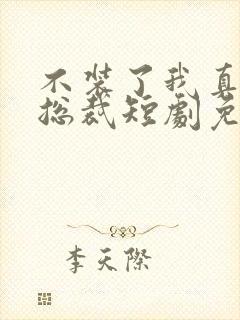 不装了我真
总裁短剧免
李天際